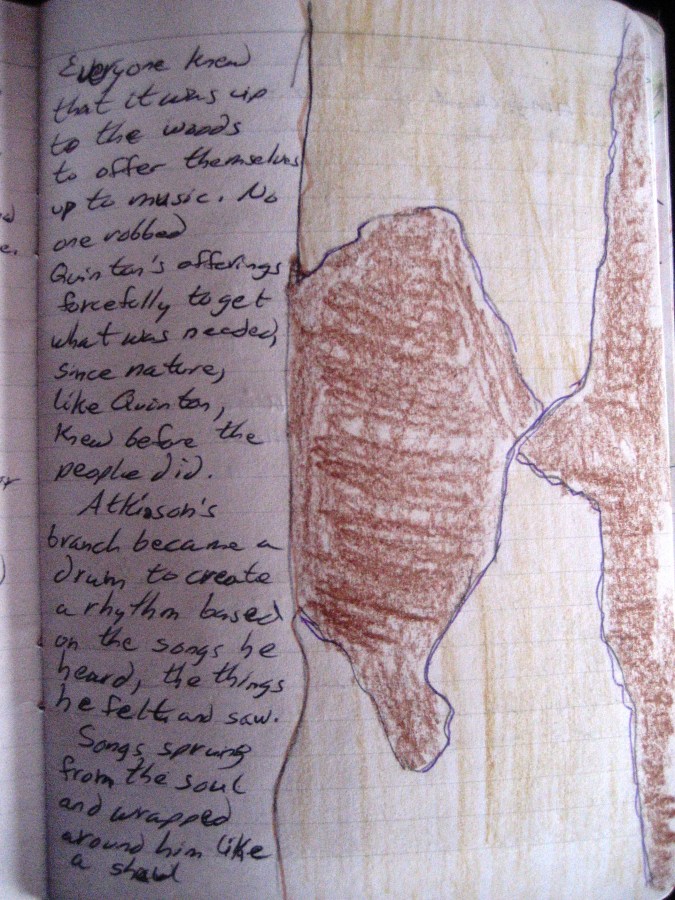 Everyone knew
that it was up
to the woods
to offer themselves
up to music. No
one robbed
Quinton's offerings
forcefully to get
what was needed,
since nature,
like Quinton,
knew before the
people did.
Atkinson's
branch became a
drum to create
a rhythm based
on the songs he
heard, the things
he felt, and saw.
Songs sprung
from the soul
and wrapped
around him like
a shawl